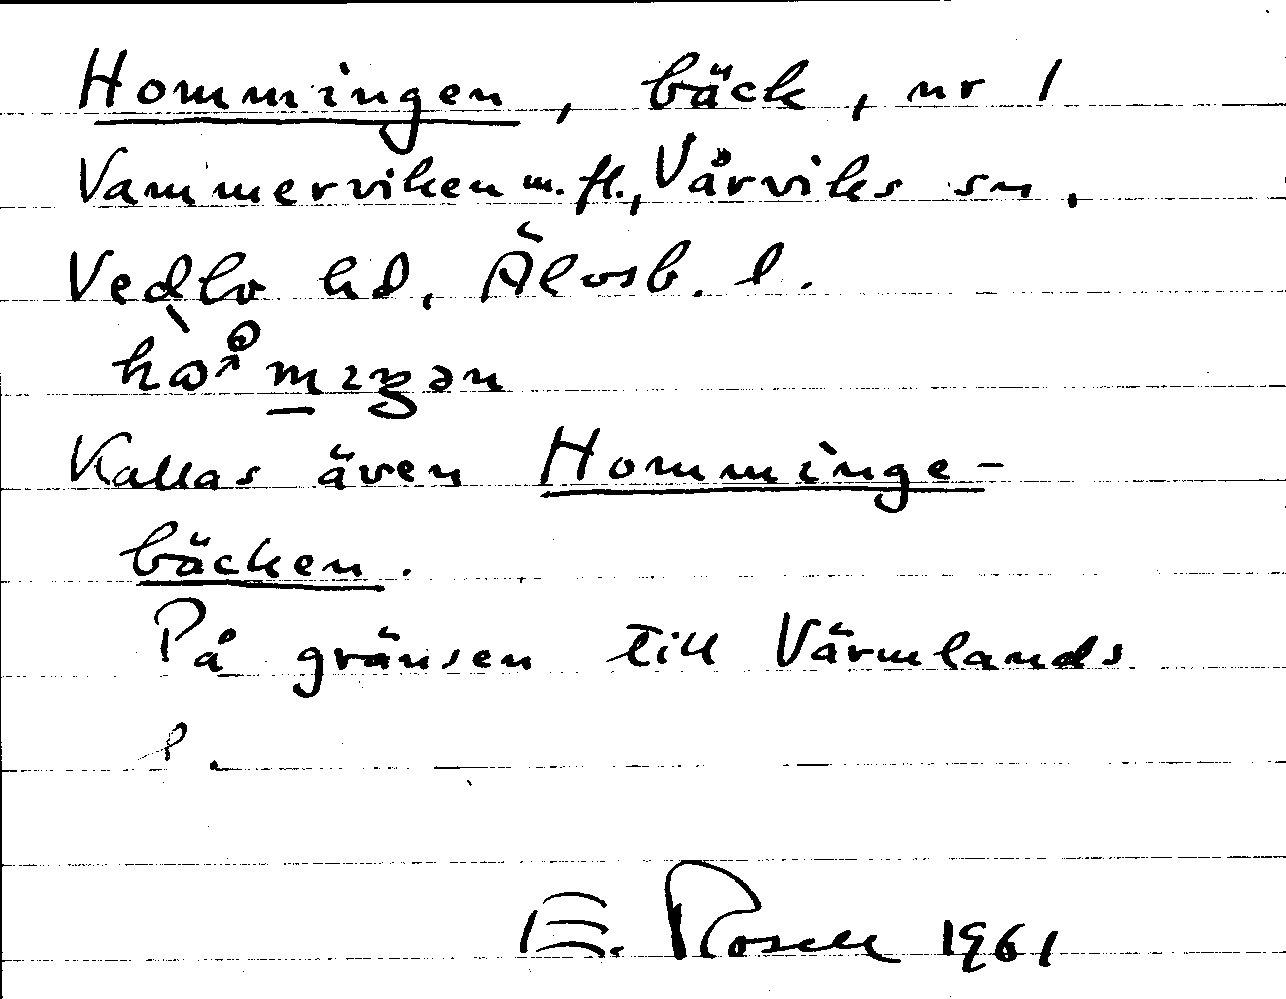 Hommingen, bäck, nr 1
Vammerviken m.fl., Vårviks sn,
Vedbo hd, Älvsb. l.
Kallas även Homminge-
bäcken.
På gränsen till Värmlands
l.
E. Rosell 1961